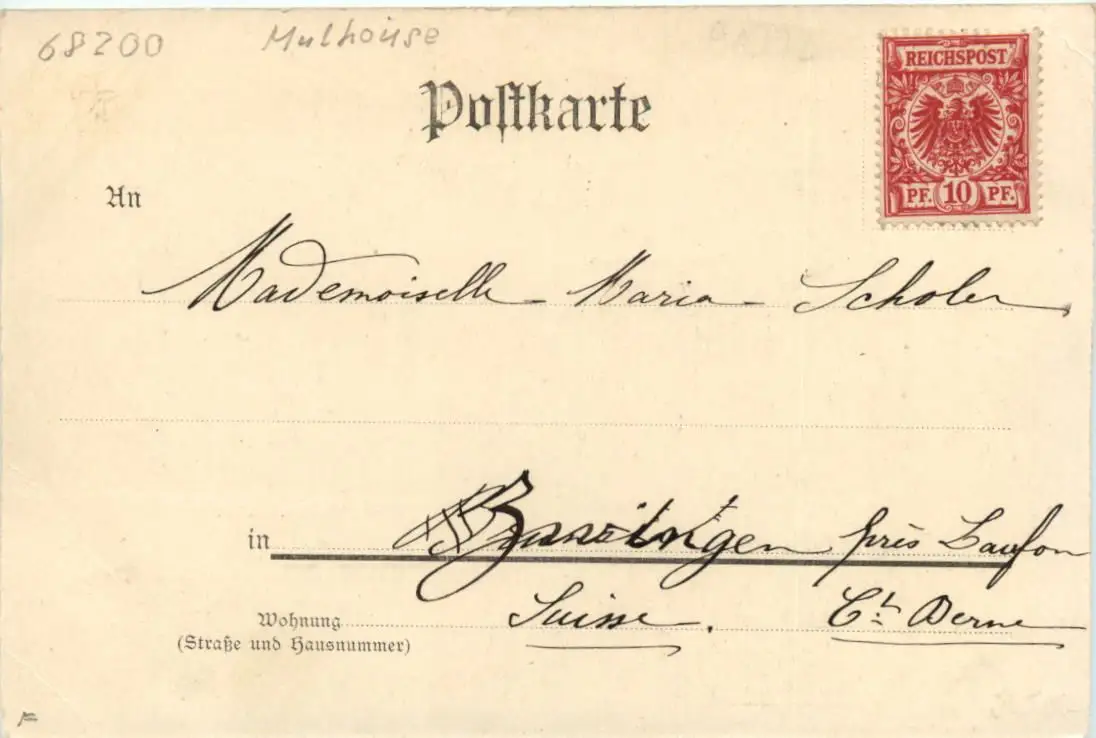 68200 Mulhouse
Postkarte
REICHSPOST
PF. 10 PF.
An
Mademoiselle Maria Scholer
in près Laufon
Wohnung Suisse. Ct. Berne
(Straße und Hausnummer)